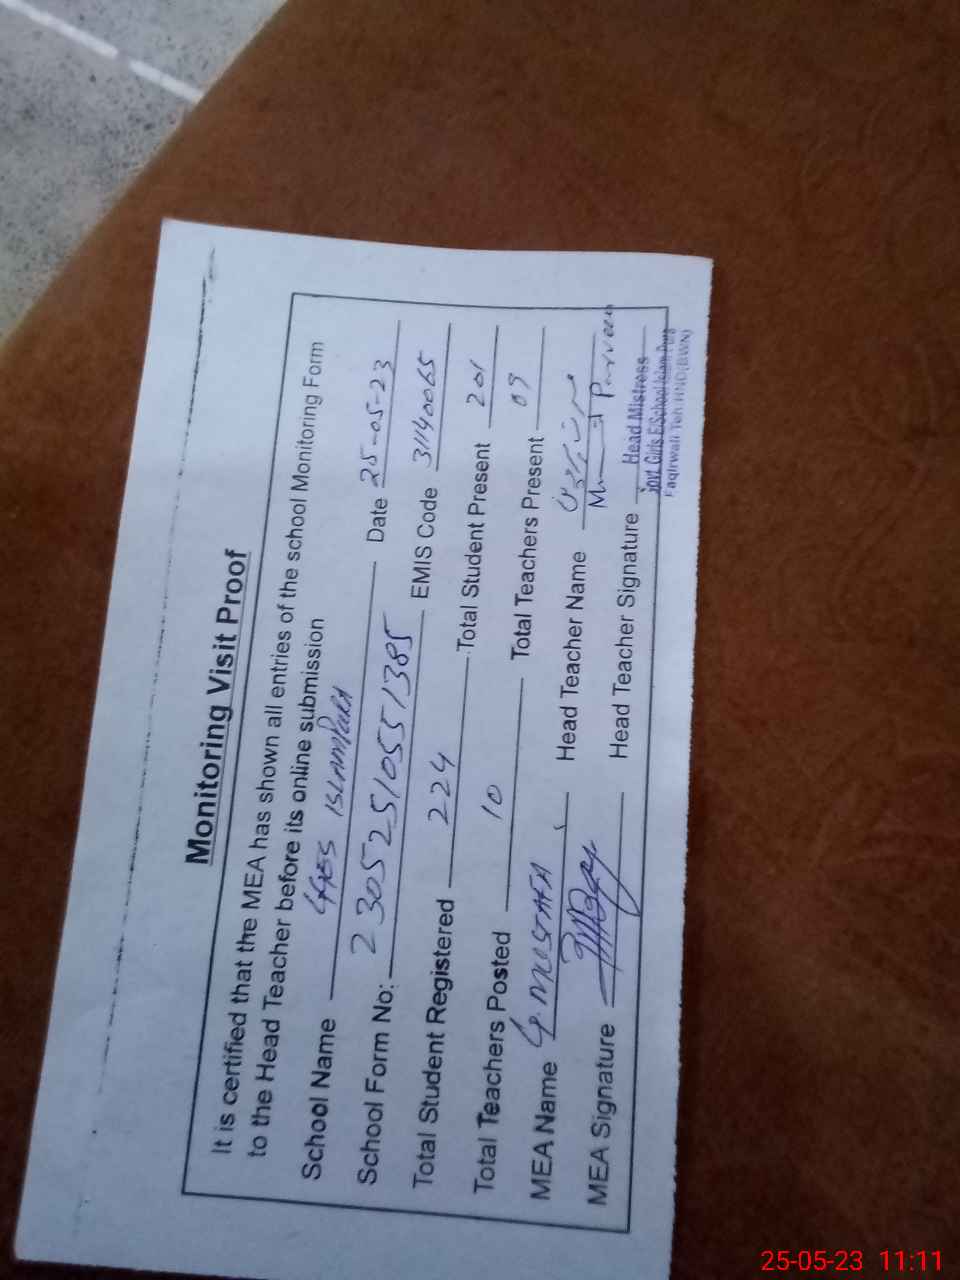 Monitoring Visit Proof
It is certified that the MEA has shown all entries of the school Monitoring Form
to the Head Teacher before its online submission
School Name GGES ISLAMPURA Date 25-05-23
School Form No: 23052510551385 EMIS Code 31140065
Total Student Registered 224 Total Student Present 201
Total Teachers Posted 10 Total Teachers Present 09
MEA Name G. MUSTAFA Head Teacher Name
MEA Signature Head Teacher Signature Parveen
Head Mistress
Govt Girls E/School Islam Pura
Faqirwali Teh HND(BWN)
25-05-23 11:11